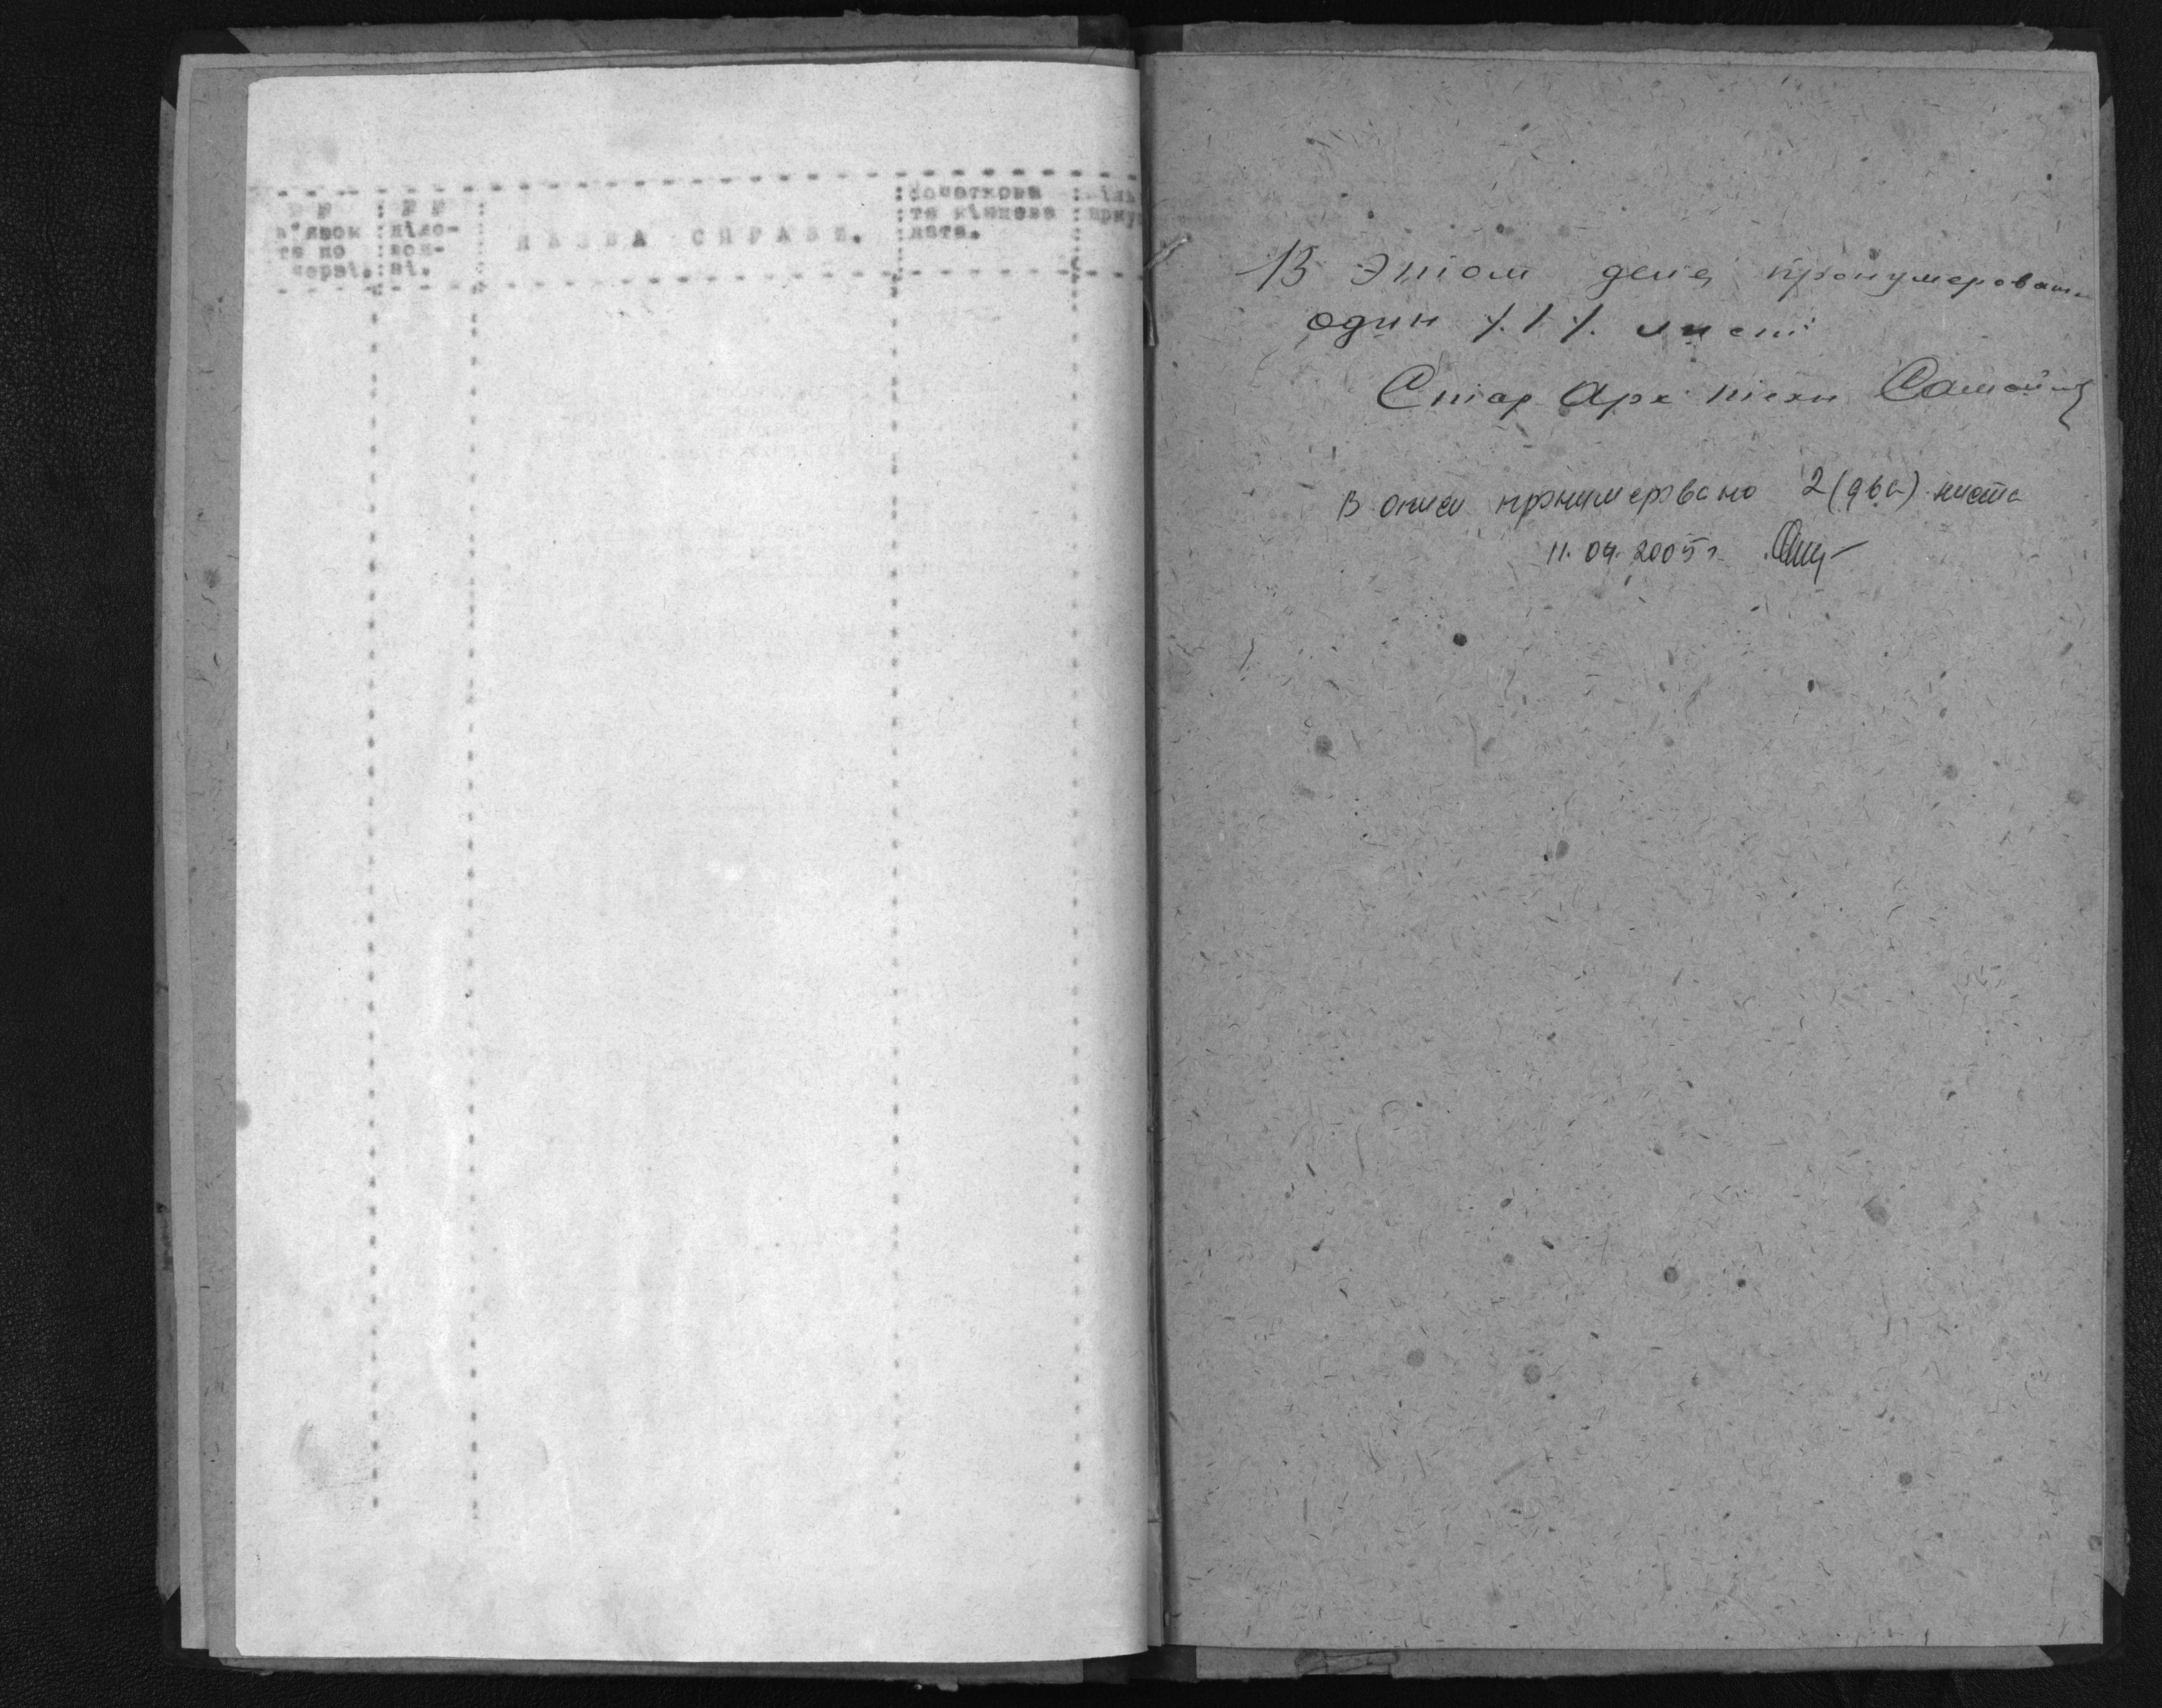 № №
в'язок
та по
черзі.
№ №
діло-
вод-
ні.
НАЗВА СПРАВИ.
початкова
та кінцева
дата.
В этом деле пронумеровано
один /.1/. лист
Стар Арх техн
В описи пронумеровано 2 (два) листа
11.04.2005 г.